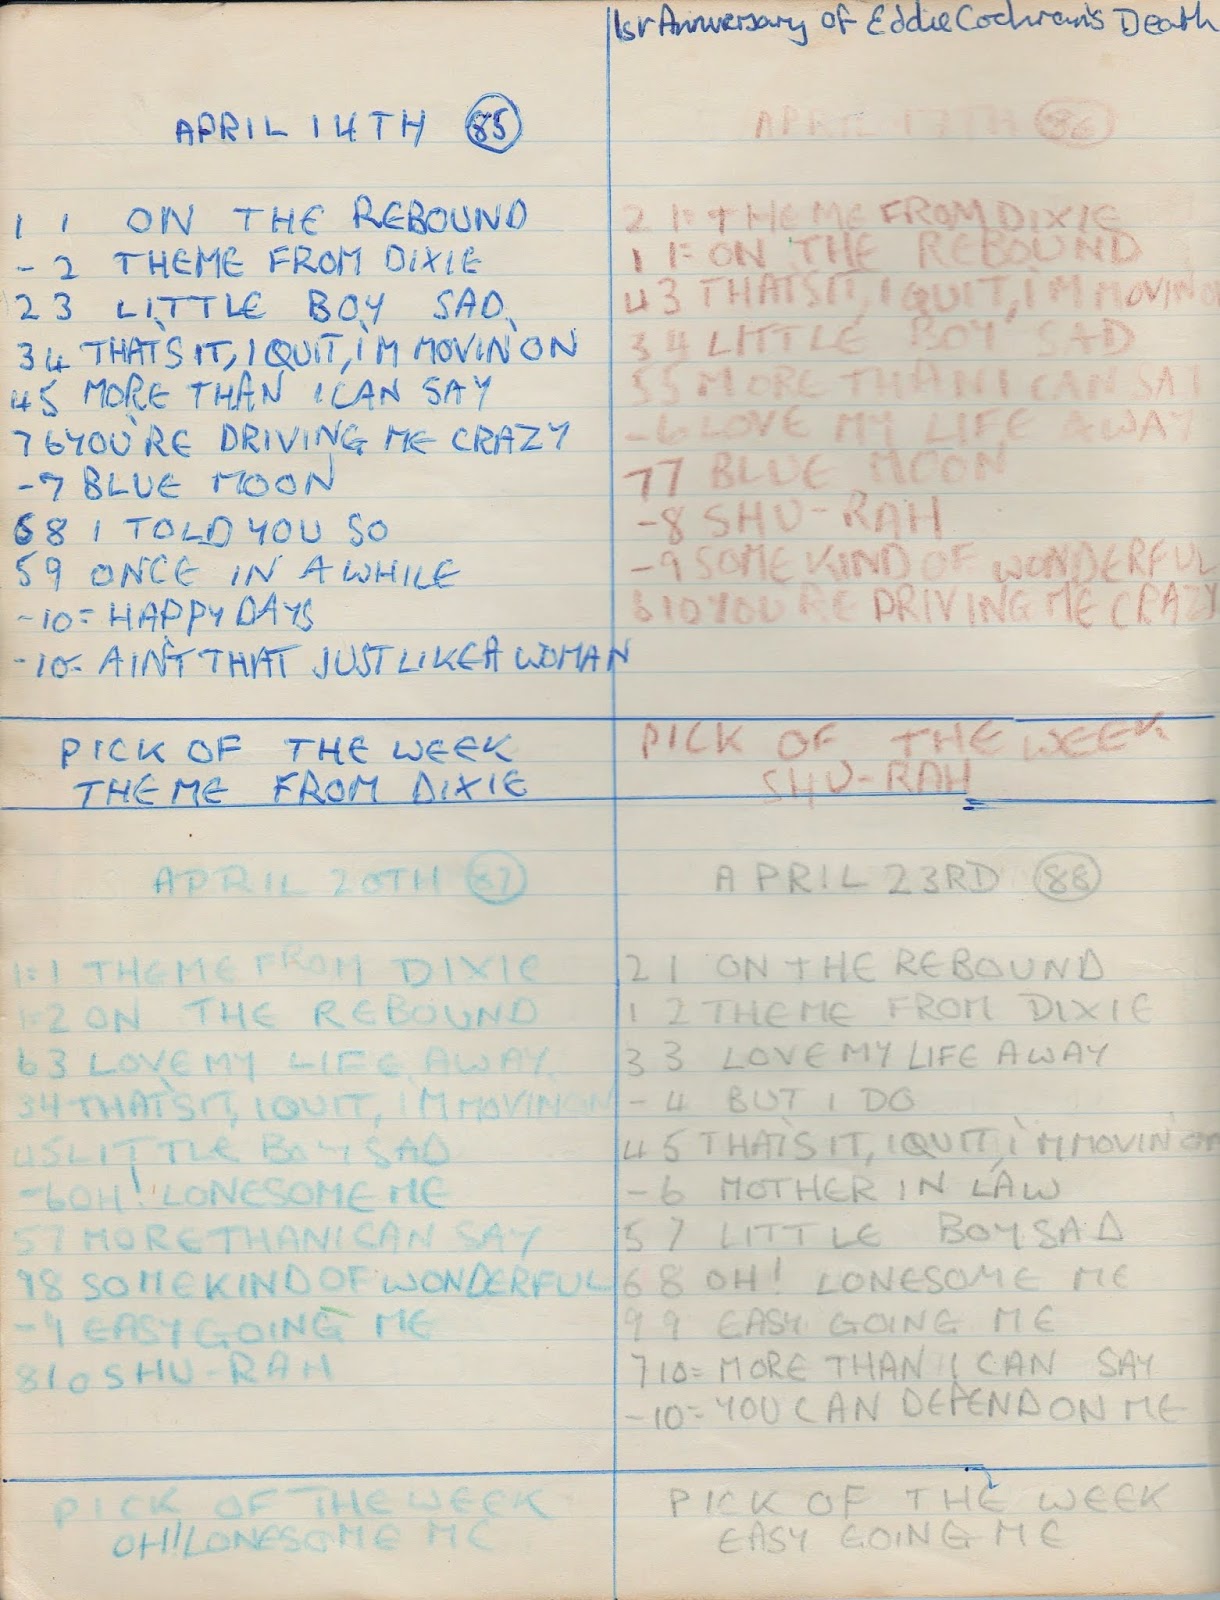 1st Anniversary of Eddie Cochran's Death
APRIL 14TH 85
1 1 ON THE REBOUND
- 2 THEME FROM DIXIE
2 3 LITTLE BOY SAD
3 4 THAT'S IT, I QUIT, I'M MOVIN' ON
4 5 MORE THAN I CAN SAY
7 6 YOU'RE DRIVING ME CRAZY
- 7 BLUE MOON
6 8 I TOLD YOU SO
5 9 ONCE IN A WHILE
- 10= HAPPY DAYS
- 10= AIN'T THAT JUST LIKE A WOMAN
PICK OF THE WEEK
THEME FROM DIXIE
APRIL 17TH 86
2 1= THEME FROM DIXIE
1 1= ON THE REBOUND
4 3 THAT'S IT, I QUIT, I'M MOVIN ON
3 4 LITTLE BOY SAD
5 5 MORE THAN I CAN SAY
- 6 LOVE MY LIFE AWAY
7 7 BLUE MOON
- 8 SHU-RAH
- 9 SOME KIND OF WONDERFUL
6 10 YOU'RE DRIVING ME CRAZY
PICK OF THE WEEK
SHU-RAH
APRIL 20TH 87
1= 1 THEME FROM DIXIE
1= 2 ON THE REBOUND
6 3 LOVE MY LIFE AWAY
3 4 THAT'S IT, I QUIT, I'M MOVIN ON
4 5 LITTLE BOY SAD
- 6 OH! LONESOME ME
5 7 MORE THAN I CAN SAY
9 8 SOME KIND OF WONDERFUL
- 9 EASY GOING ME
8 10 SHU-RAH
PICK OF THE WEEK
OH! LONESOME ME
APRIL 23RD 88
2 1 ON THE REBOUND
1 2 THEME FROM DIXIE
3 3 LOVE MY LIFE AWAY
- 4 BUT I DO
4 5 THAT'S IT, I QUIT, I'M MOVIN' ON
- 6 MOTHER IN LAW
5 7 LITTLE BOY SAD
6 8 OH! LONESOME ME
9 9 EASY GOING ME
7 10= MORE THAN I CAN SAY
- 10= YOU CAN DEPEND ON ME
PICK OF THE WEEK
EASY GOING ME